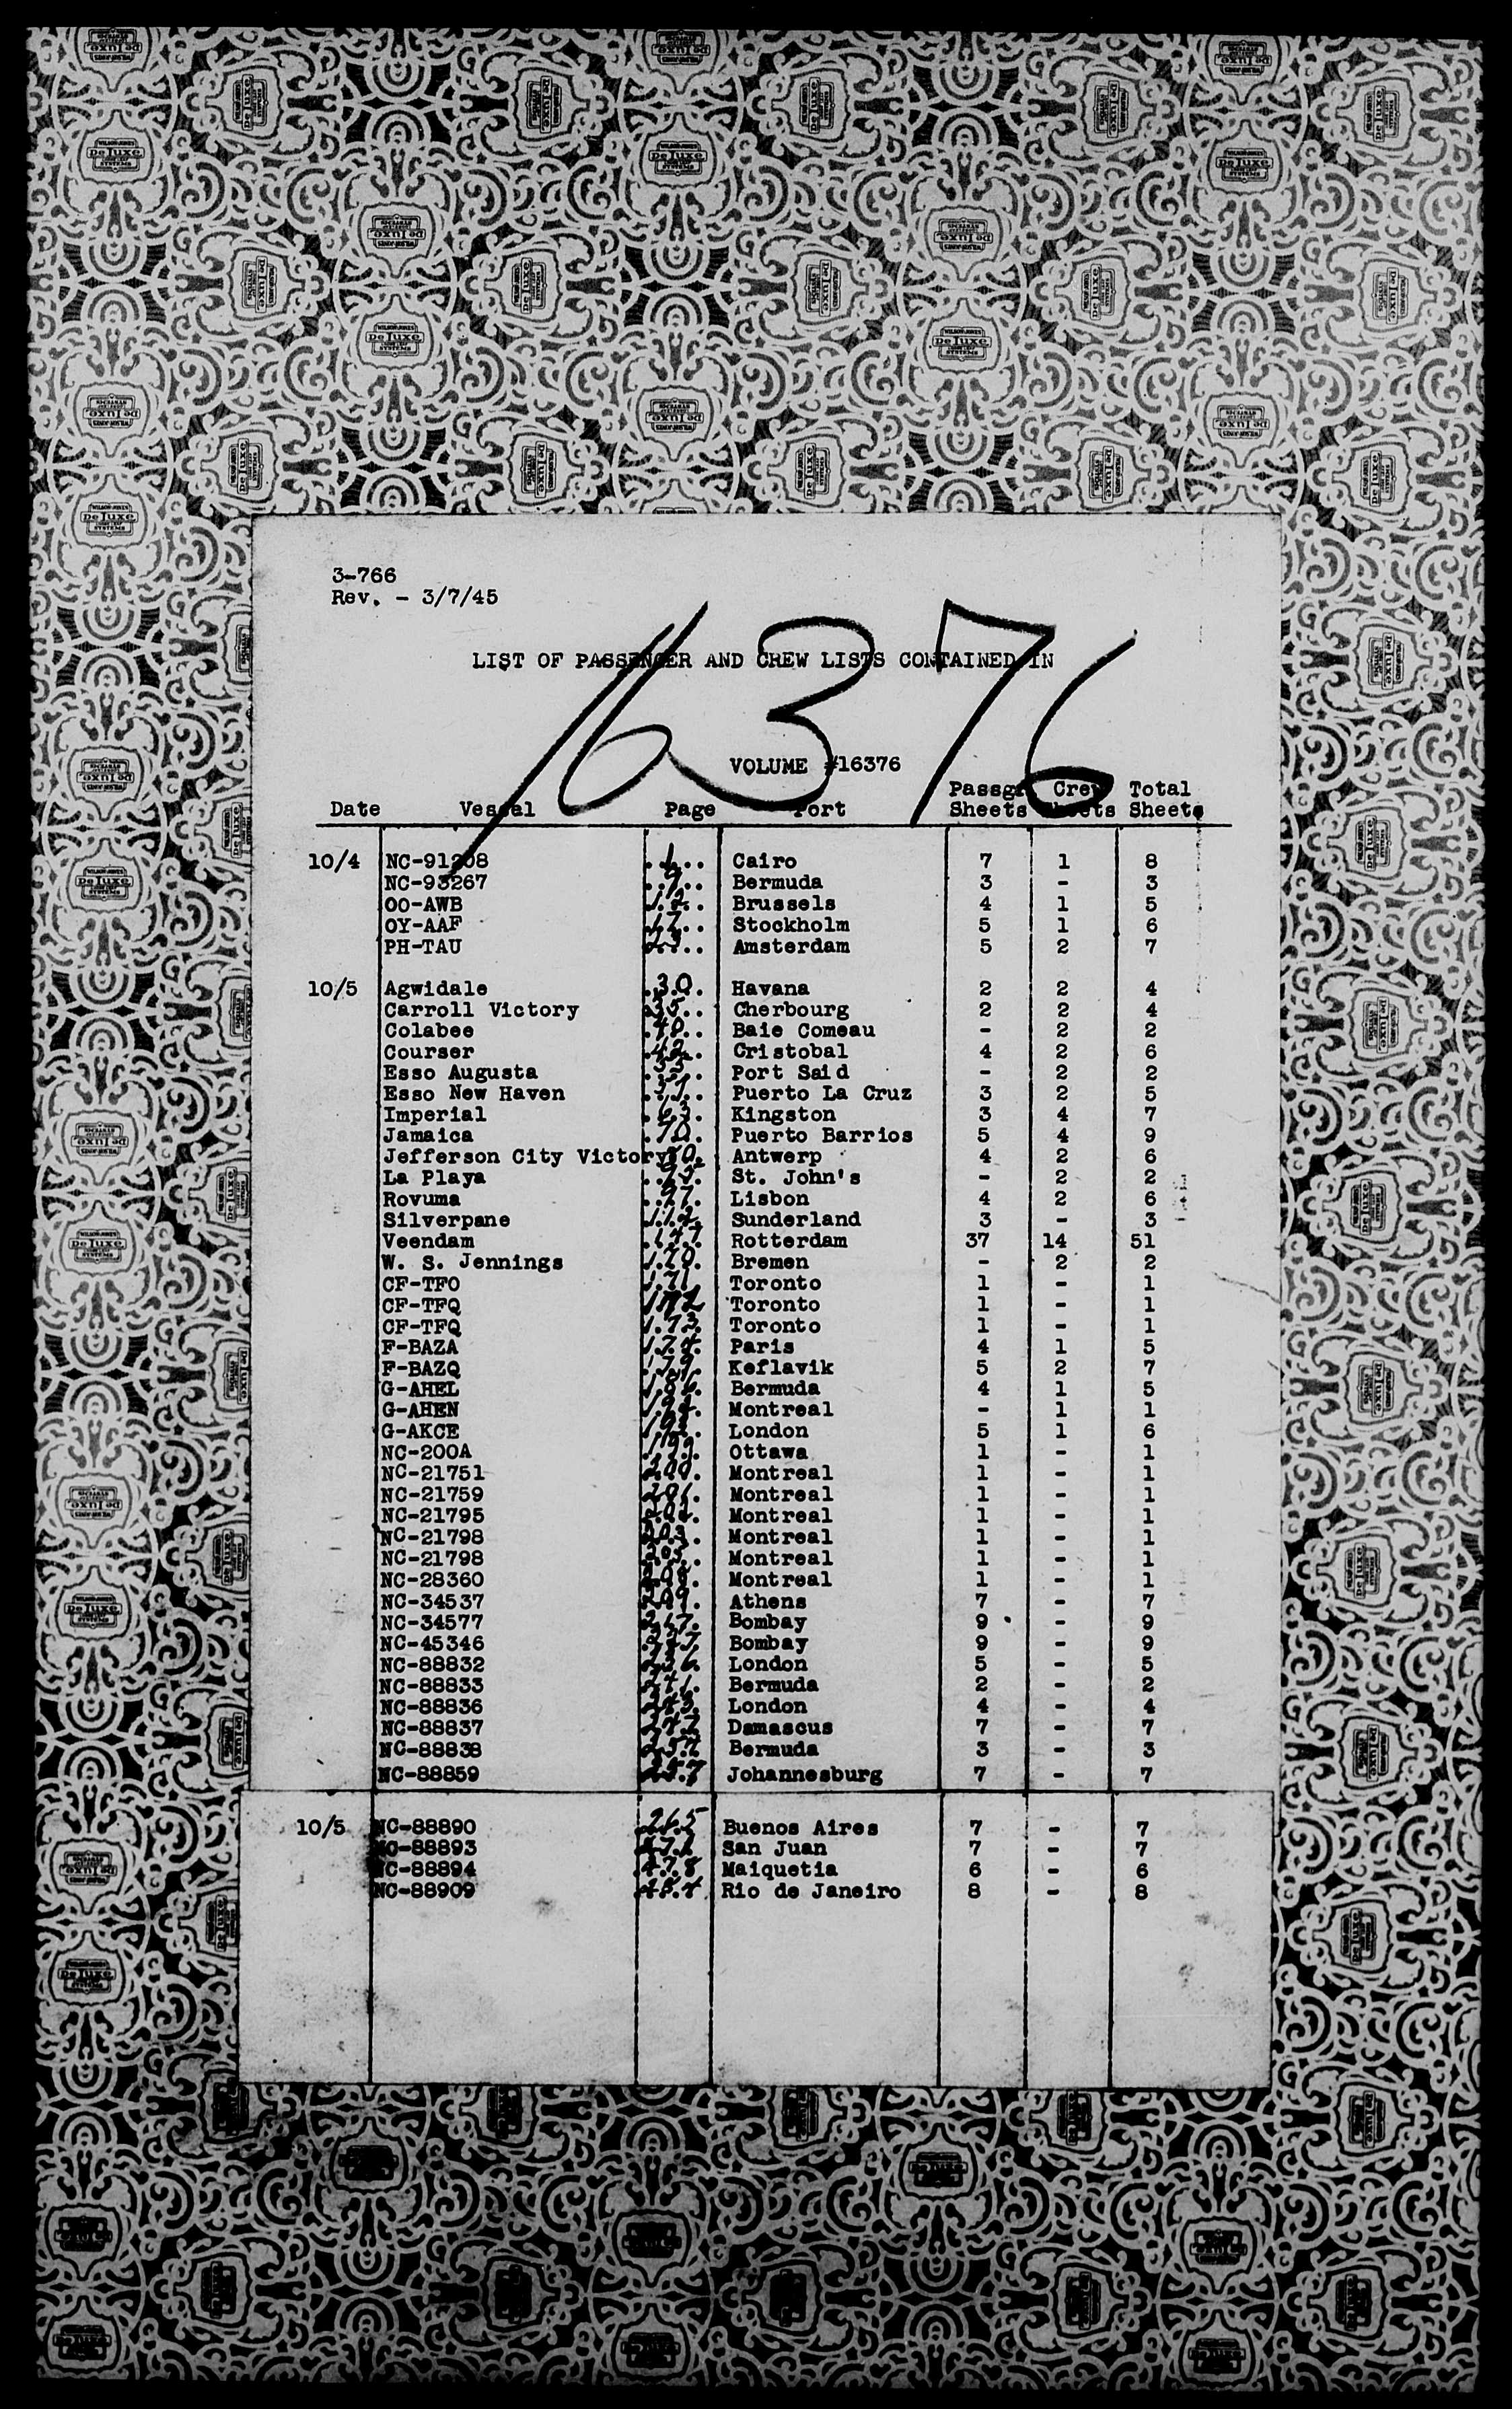 3-766
Rev. - 3/7/45
LIST OF PASSENGER AND CREW LISTS CONTAINED IN
16376
VOLUME #16376
Date Vessel Page Port Passgr Sheets Crew Sheets Total Sheets
10/4 NC-91208 1 Cairo 7 1 8
NC-93267 9 Bermuda 3 - 3
OO-AWB 12 Brussels 4 1 5
OY-AAF 17 Stockholm 5 1 6
PH-TAU 23 Amsterdam 5 2 7
10/5 Agwidale 30 Havana 2 2 4
Carroll Victory 35 Cherbourg 2 2 4
Colabee 40 Baie Comeau - 2 2
Courser 42 Cristobal 4 2 6
Esso Augusta Port Said - 2 2
Esso New Haven Puerto La Cruz 3 2 5
Imperial 63 Kingston 3 4 7
Jamaica 70 Puerto Barrios 5 4 9
Jefferson City Victory Antwerp 4 2 6
La Playa St. John's - 2 2
Rovuma 97 Lisbon 4 2 6
Silverpane Sunderland 3 - 3
Veendam Rotterdam 37 14 51
W. S. Jennings Bremen - 2 2
CF-TFO 171 Toronto 1 - 1
CF-TFQ 172 Toronto 1 - 1
CF-TFQ 173 Toronto 1 - 1
F-BAZA 174 Paris 4 1 5
F-BAZQ 179 Keflavik 5 2 7
G-AHEL 186 Bermuda 4 1 5
G-AHEN Montreal - 1 1
G-AKCE London 5 1 6
NC-200A 199 Ottawa 1 - 1
NC-21751 200 Montreal 1 - 1
NC-21759 201 Montreal 1 - 1
NC-21795 202 Montreal 1 - 1
NC-21798 203 Montreal 1 - 1
NC-21798 205 Montreal 1 - 1
NC-28360 208 Montreal 1 - 1
NC-34537 209 Athens 7 - 7
NC-34577 217 Bombay 9 - 9
NC-45346 227 Bombay 9 - 9
NC-88832 236 London 5 - 5
NC-88833 241 Bermuda 2 - 2
NC-88836 243 London 4 - 4
NC-88837 247 Damascus 7 - 7
NC-88838 Bermuda 3 - 3
NC-88859 257 Johannesburg 7 - 7
10/5 NC-88890 265 Buenos Aires 7 - 7
NC-88893 272 San Juan 7 - 7
NC-88894 278 Maiquetia 6 - 6
NC-88909 284 Rio de Janeiro 8 - 8
WILSON-JONES
De Luxe
SYSTEMS